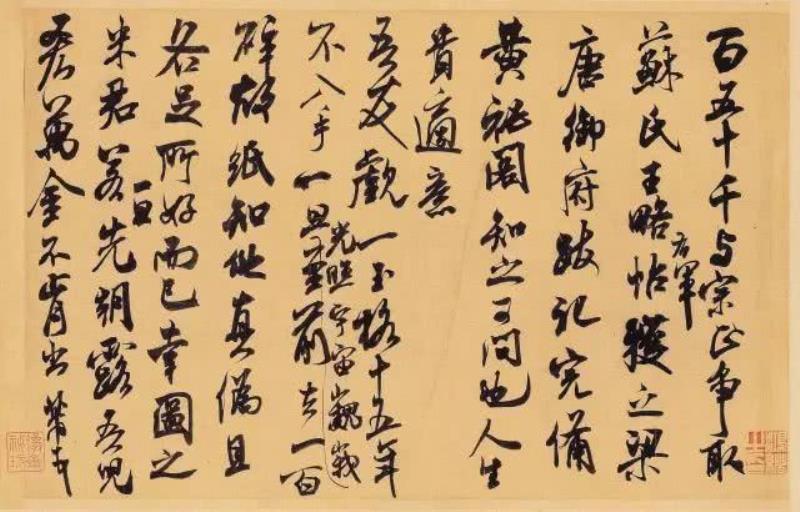 百五十千与宗正争取
蘇氏王略帖右軍獲之梁
唐御府跋記完備
黃祕閣知之可問也人生
貴適意
吾友覷一玉格十五年
不入手一旦光照宇宙巍峩至前去一百
碎故紙知他真偽且
各足所好而已幸圖之
米君若一旦先朝露吾兒
吝萬金不肯出芾頓首